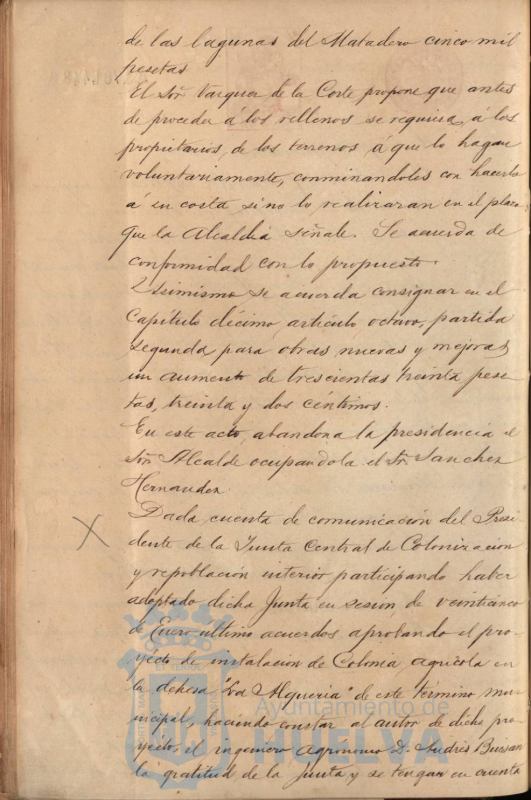 de las lagunas del Matadero cinco mil
pesetas
El Sor Vazquez de la Corte propone que antes
de proceder á los rellenos se requiera á los
propietarios de los terrenos á que lo hagan
voluntariamente, conminandoles con hacerlo
á su costa si no lo realizaran en el plazo
que la Alcaldia señale. Se acuerda de
conformidad con lo propuesto.
Asimismo se acuerda consignar en el
Capítulo décimo, artículo octavo, partida
segunda para obras nuevas y mejoras
un aumento de trescientas treinta pese
tas, treinta y dos céntimos.
En este acto, abandona la presidencia el
Sor Alcalde ocupandola el Sr Sanchez
Hernandez
Dada cuenta de comunicación del Presi
dente de la Junta Central de Colonizacion
y repoblación interior participando haber
adoptado dicha Junta en sesion de veinticinco
de Enero ultimo acuerdos aprobando el pro-
yecto de instalación de Colonia agricola en
la dehesa "La Alqueria" de este término mu-
nicipal, haciendo constar al autor de dicho pro
yecto, el ingeniero agrónomo D. Andrés
la gratitud de la Junta y se tengan en cuenta
Ayuntamiento de
HUELVA